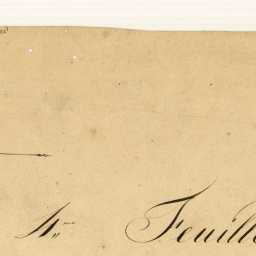 4e Feuille